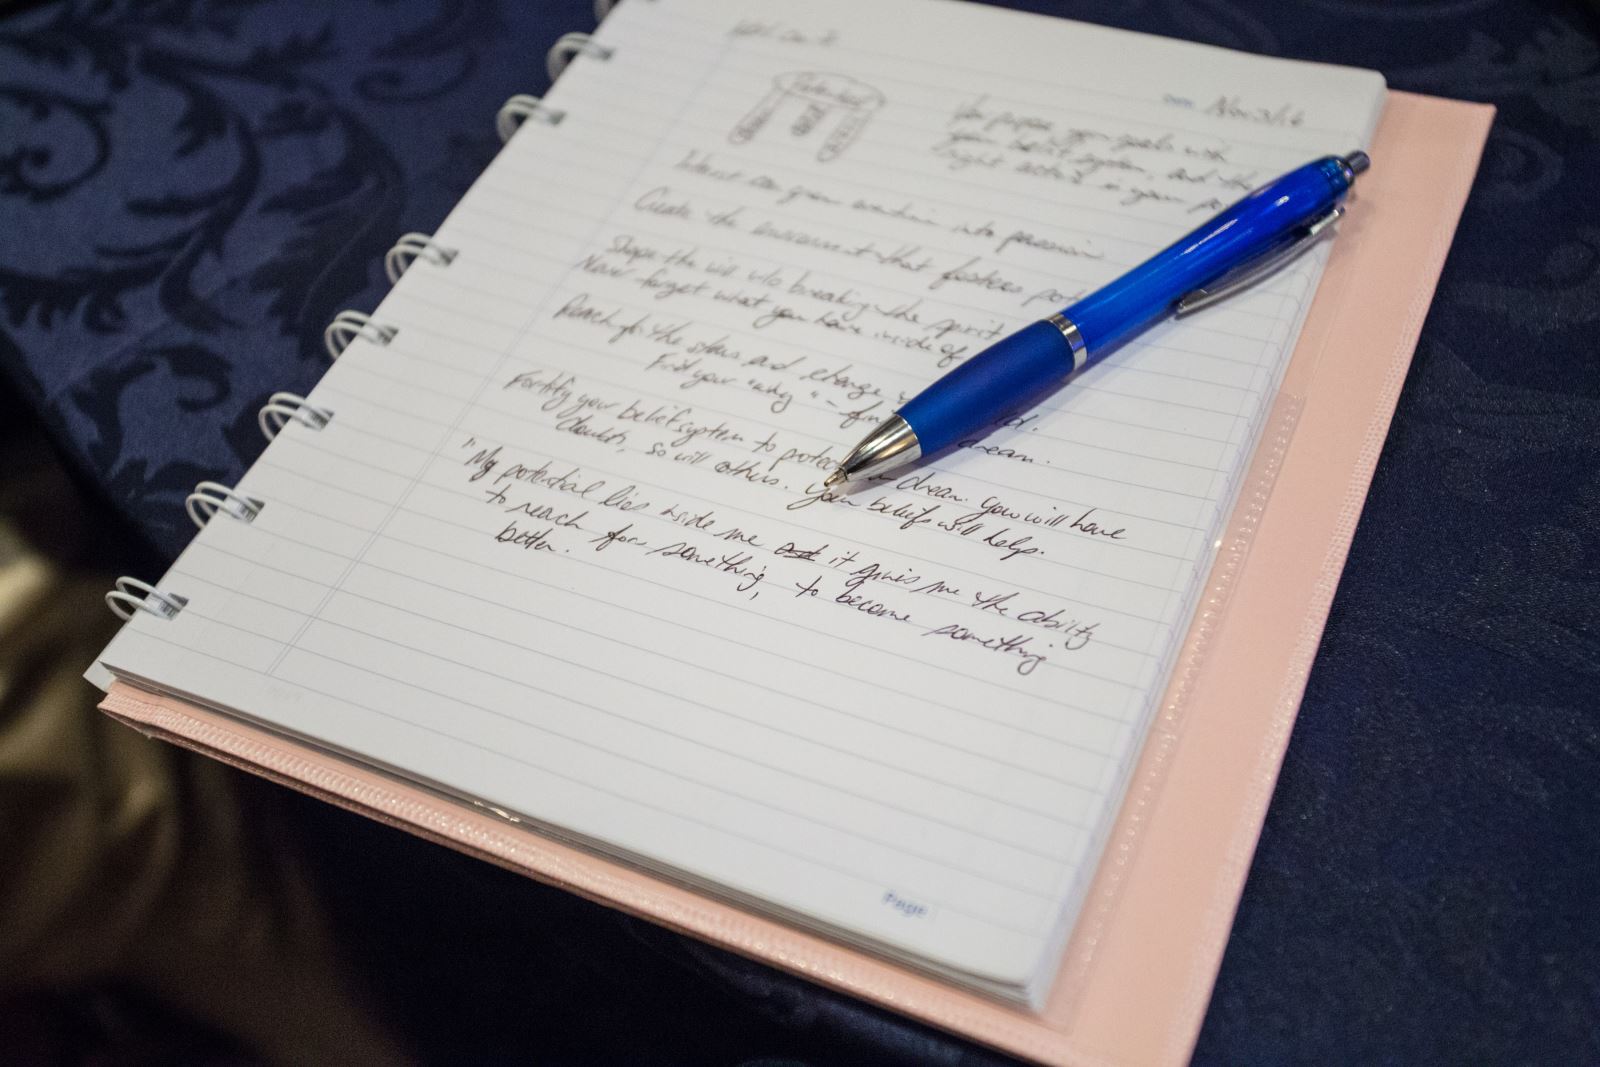 Date Nov 3/16
Potential
your goals with
your belief system, and the
right action in your
Interest can grow into passion
Create the environment that fosters
Shape the will w/o breaking the spirit
Never forget what you have inside of
Reach for the stars and change
Find your "why" -
dream.
Fortify your belief system to protect dream. You will have
doubts, so will others. Your beliefs will help.
"My potential lies inside me it gives me the ability
to reach for something, to become something
better.
Page